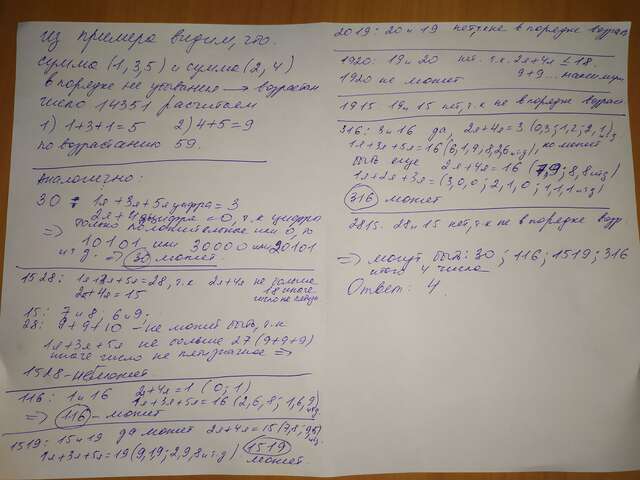 из примера видим, что
сумма (1,3,5) и сумма (2,4)
в порядке не убывания → возрастан
число 14351 расчитаем
1) 1+3+1=5 2) 4+5=9
по возрастанию 59.
Аналогично:
30 : 1я+3я+5я цифра=3
2я+4я цифра=0, т.к цифра
только положительное или 0, то
⇒ 10101 или 30000 или 20101
и т.д. ⇒ 30 может.
1528: 1я+3я+5я=28, т.к 2я+4я не больше
2я+4я=15 18 иначе
15: 7 и 8; 6 и 9;
28: 9+9+10 – не может быть, т.к
1я+3я+5я не больше 27 (9+9+9)
иначе число не пятизначное ⇒
1528 – не может.
116: 1 и 16 2я+4я=1 (0;1)
1я+3я+5я=16 (2,6,8; 1,6,9)
⇒ 116 – может
1519: 15 и 19 да может 2я+4я=15 (7,8; 9,6)
1я+3я+5я=19 (9,1,9; 2,9,8 и т.д) 1519
может.
2019: 20 и 19 нет, т.к не в порядке возраст
1920: 19 и 20 нет. т.к. 2я+4я ≤ 18.
1920 не может 9+9... максимум
1915. 19 и 15 нет, т.к не в порядке возраст
316: 3 и 16 да, 2я+4я=3 (0,3; 1,2; 2,1)
1я+3я+5я=16 (6,1,9, 8,2,6 и т.д), но может
быть еще 2я+4я=16 (7,9; 8,8 и т.д)
1я+2я+3я=(3,0,0; 2,1,0; 1,1,1 и т.д)
316 может
2815. 28 и 15 нет, т.к не в порядке возр.
⇒ могут быть: 30; 116; 1519; 316
итого 4 числа
Ответ: 4.